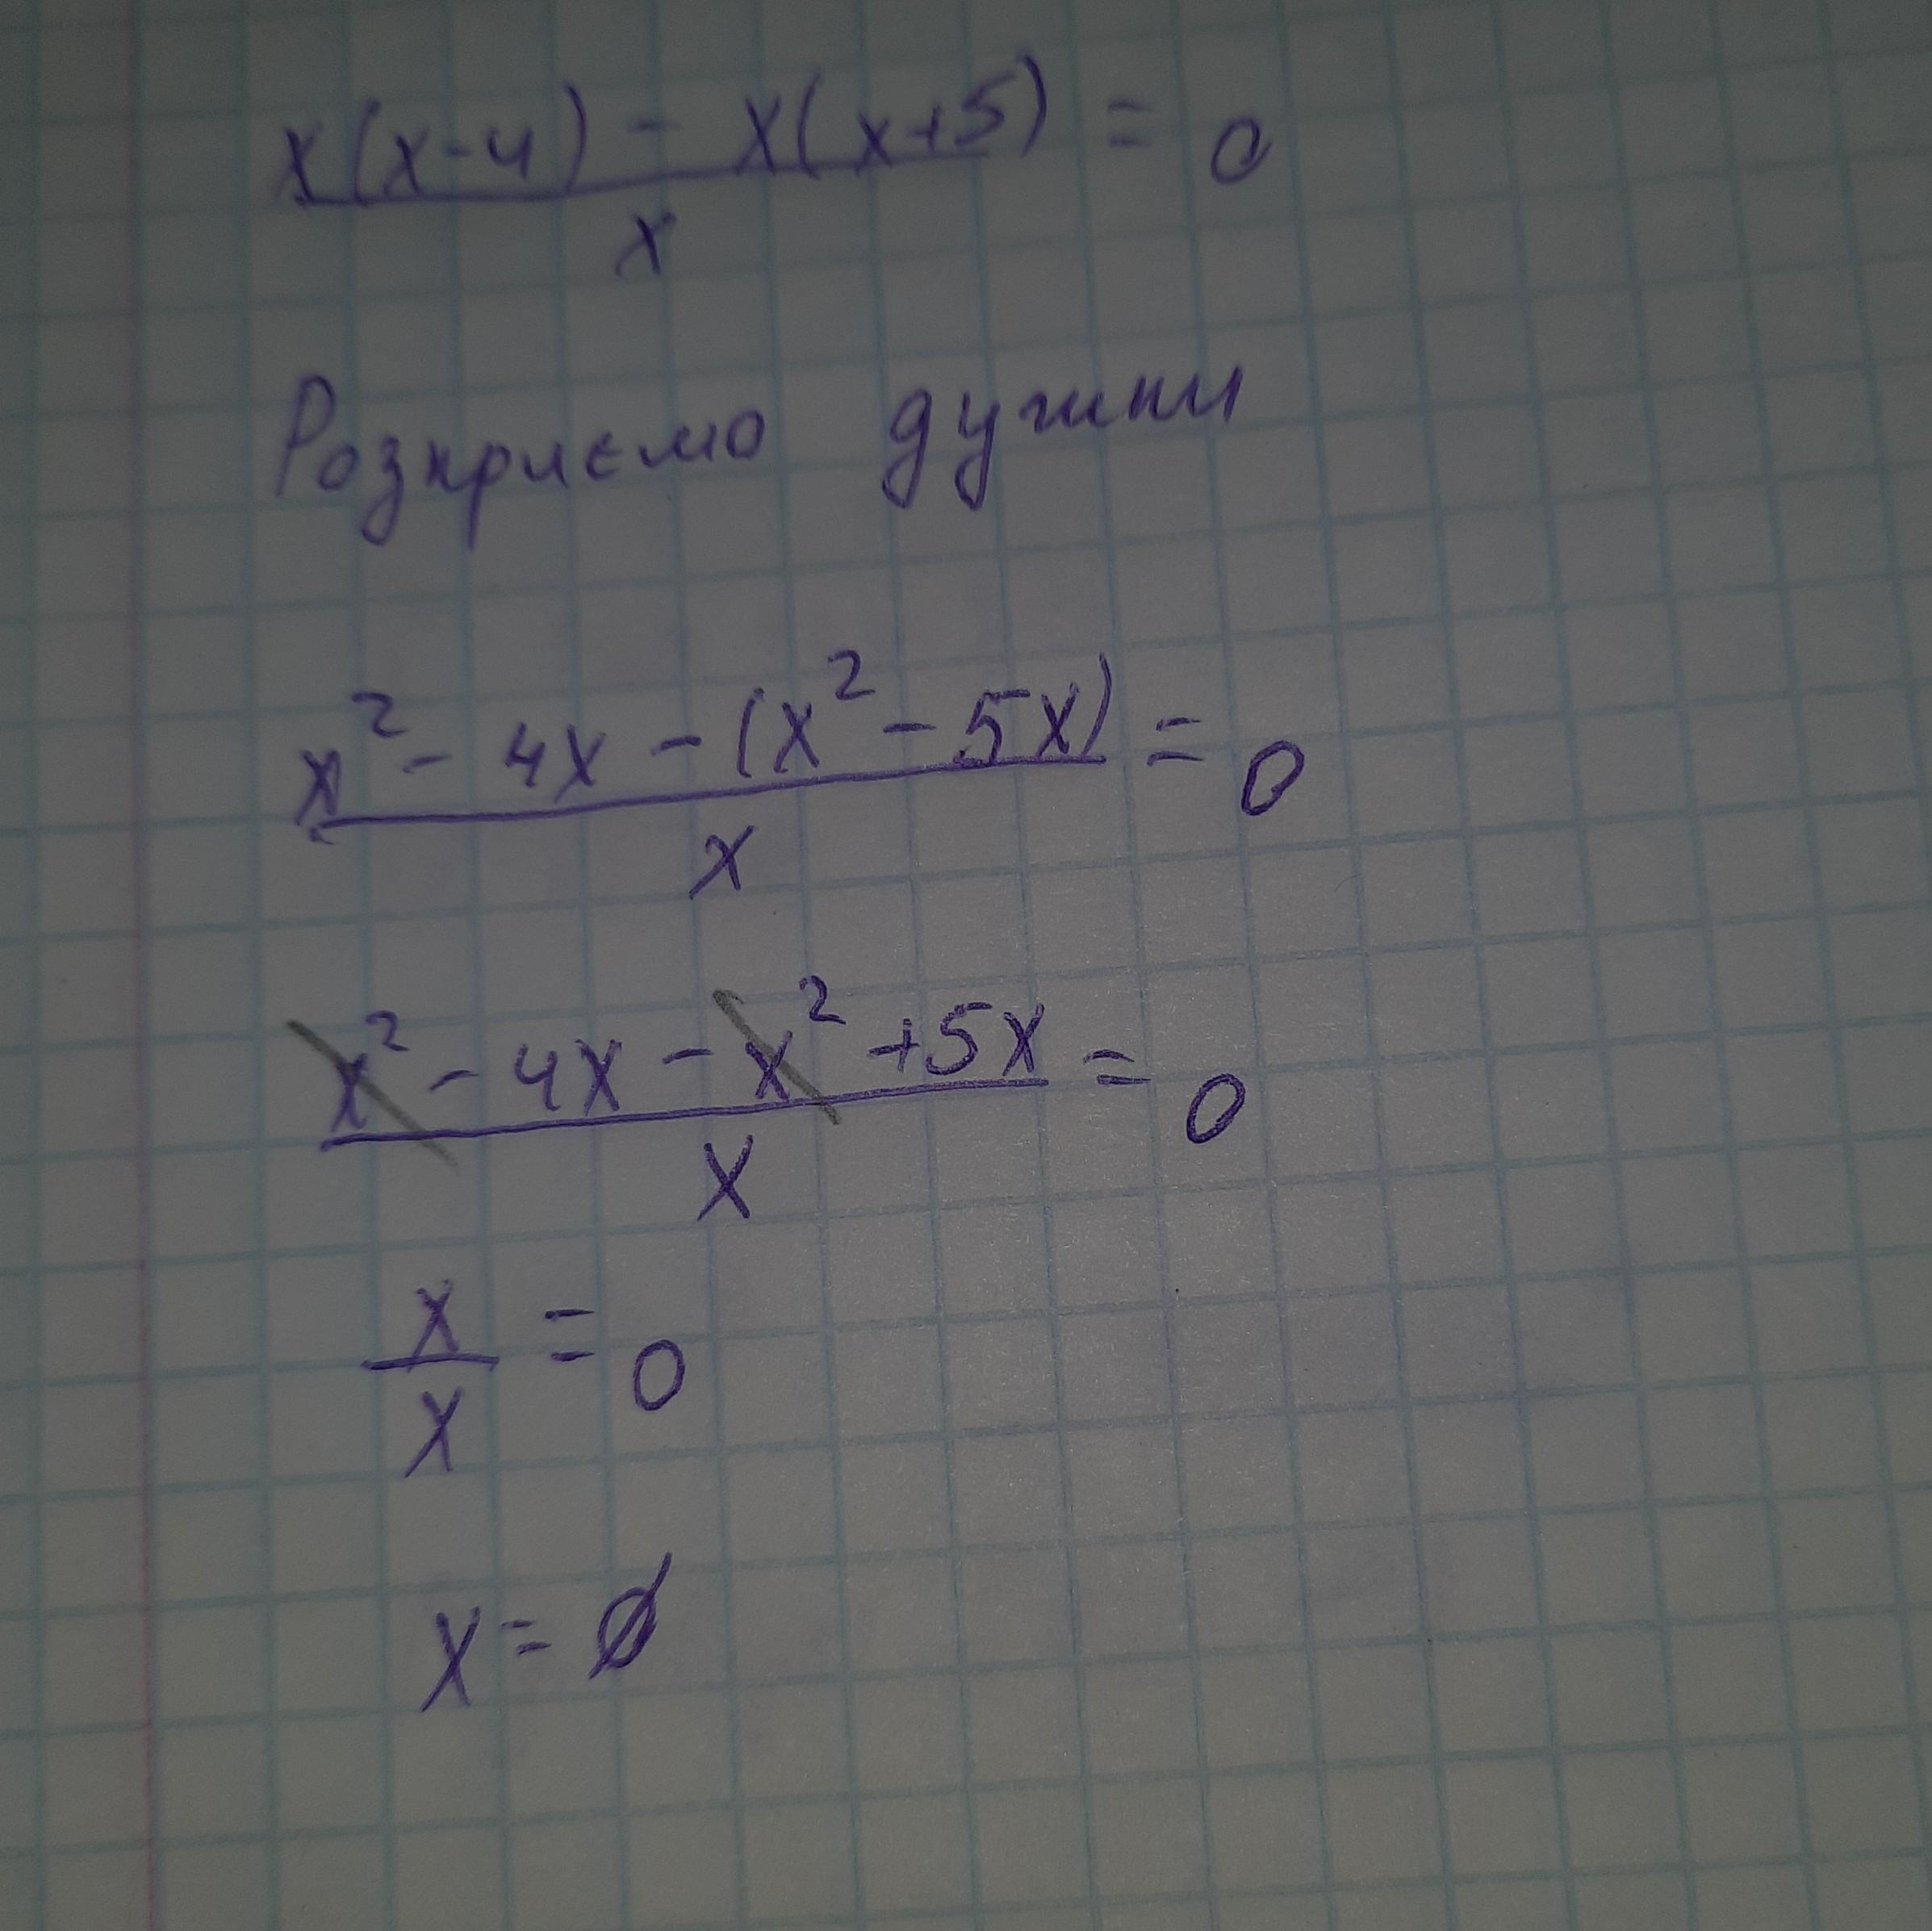 x(x-4) - x(x+5) = 0
x
Розкриємо дужки
x² - 4x - (x² - 5x) = 0
x
x² - 4x - x² + 5x = 0
x
x = 0
x
x = ∅